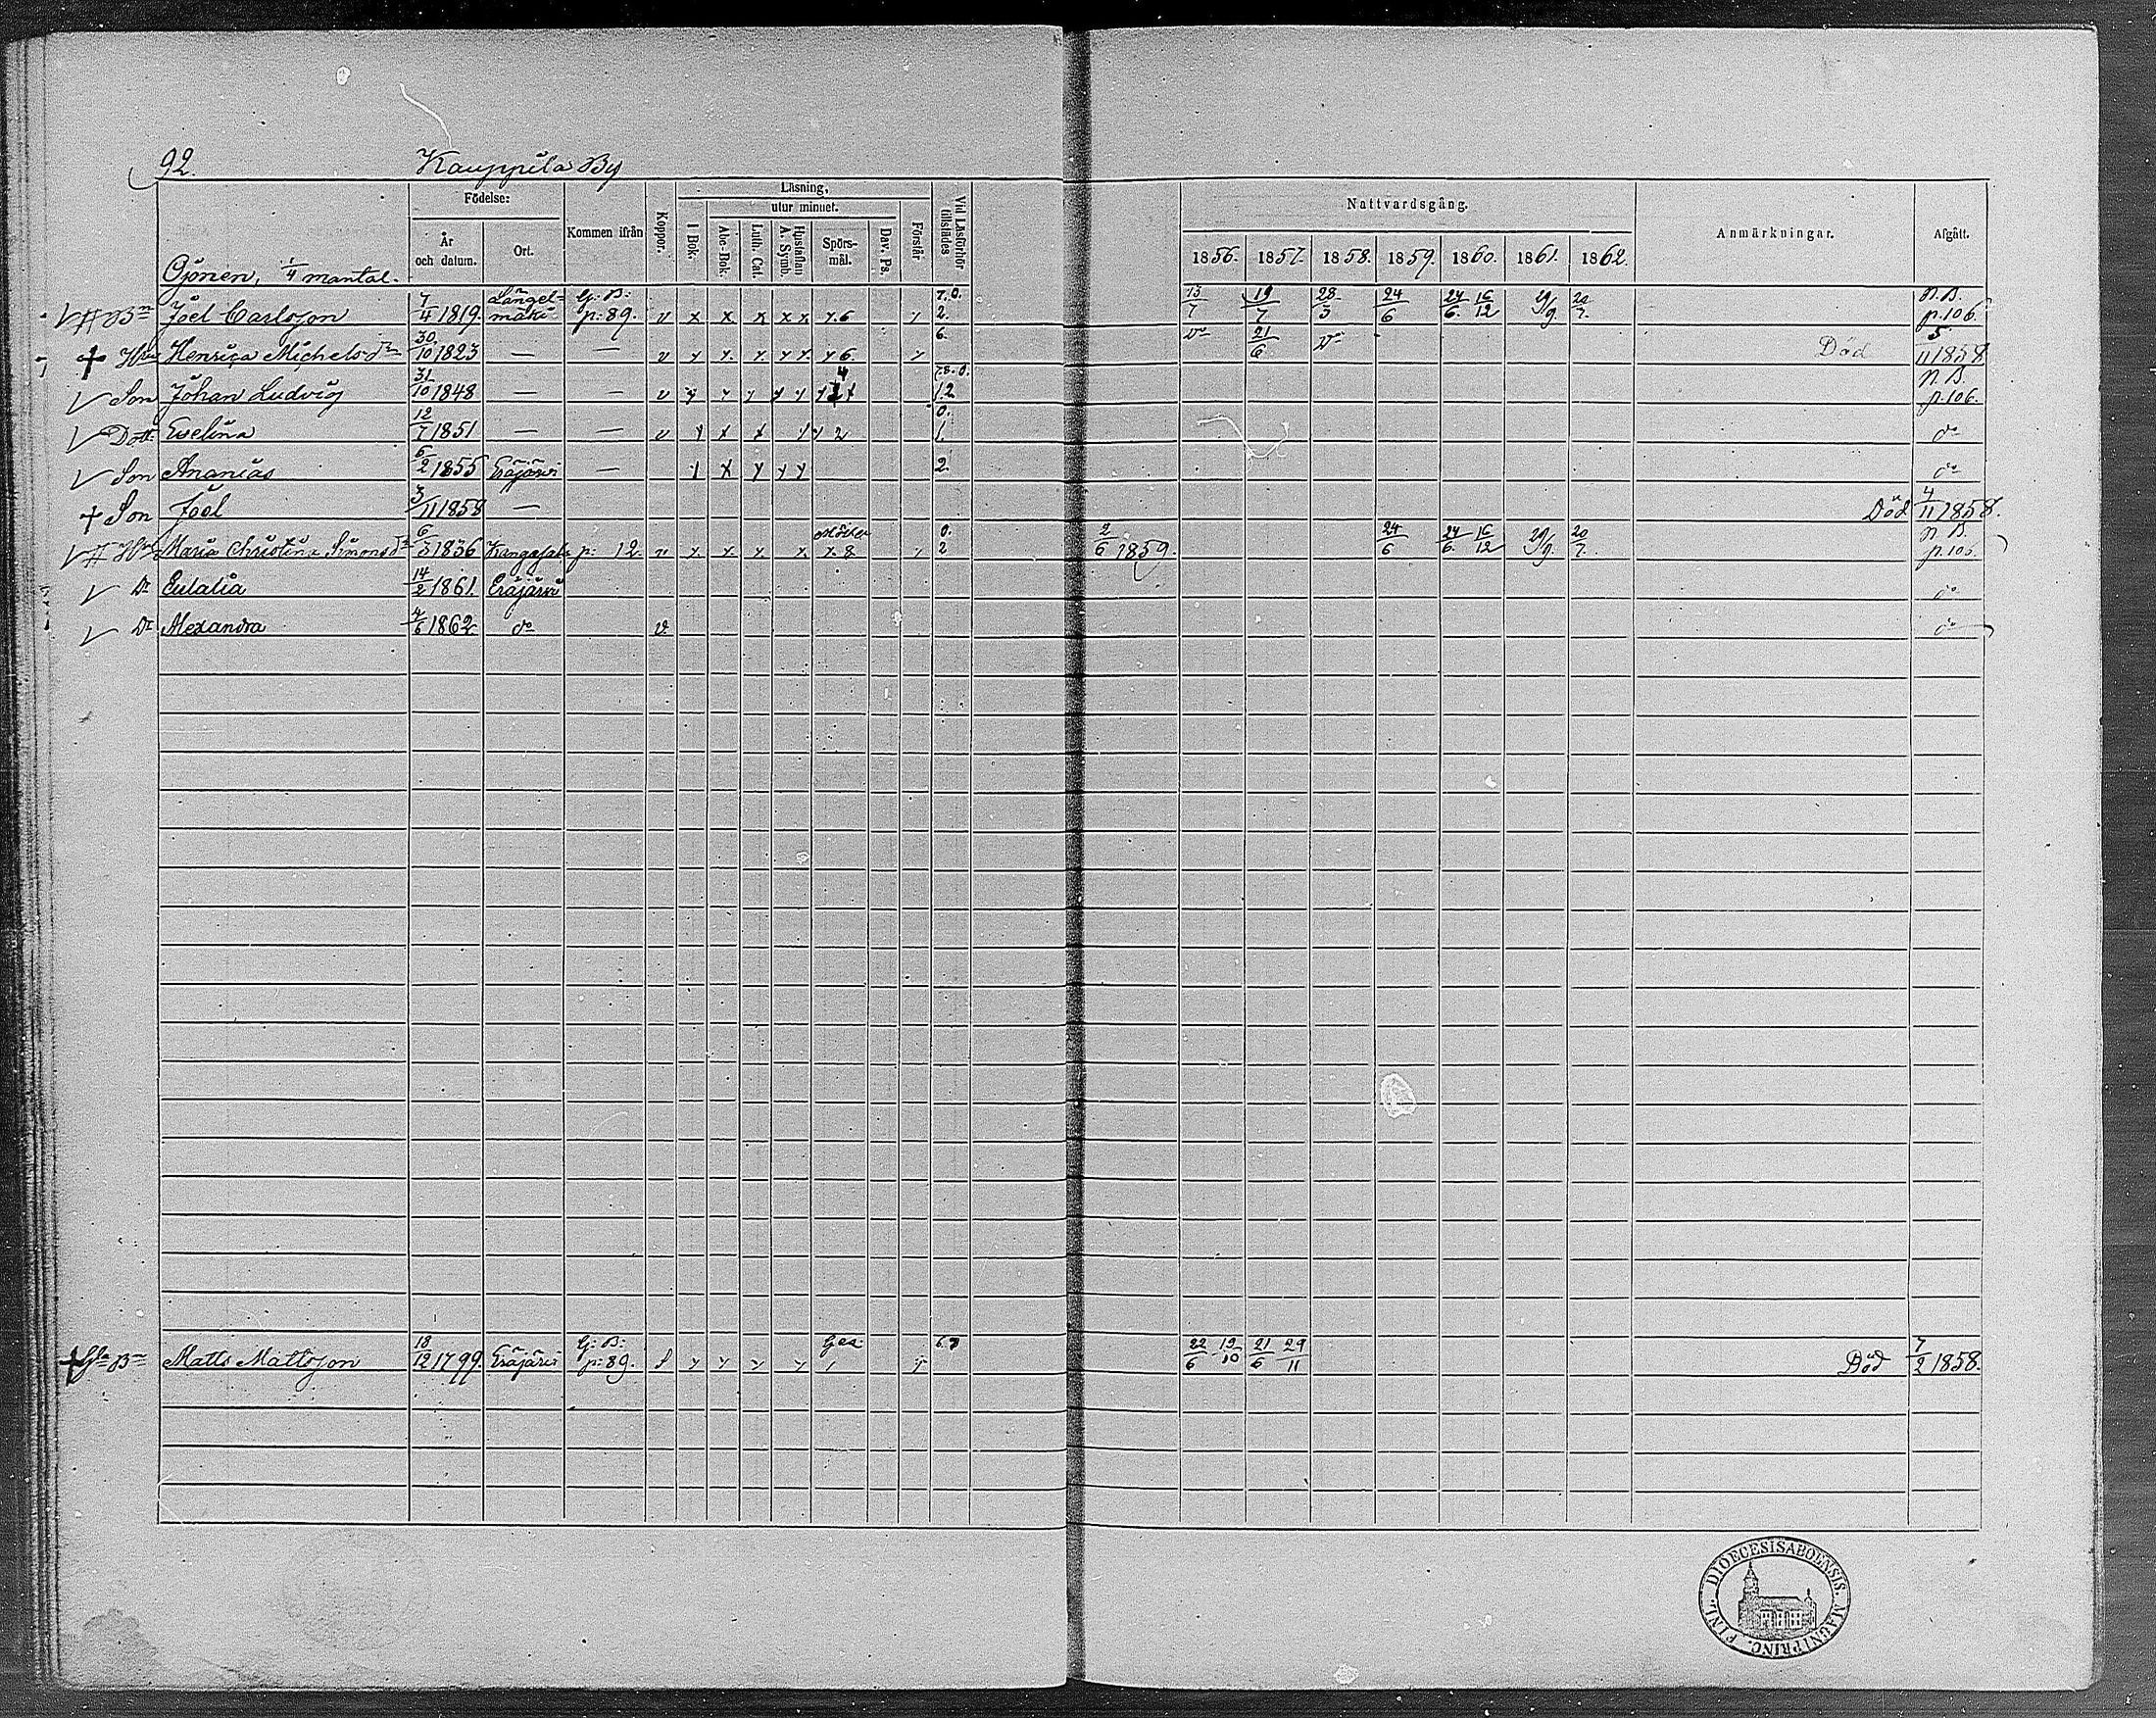 92. Kauppila By
Födelse: Läsning, Nattvardsgång.
utur minnet.
År och datum. Ort. Kommen ifrån Koppor. I Bok. Abc-Bok. Luth. Cat. Hustaflan A. Symb. Spörsmål. Dav. Ps. Förstår Vid Läsförhör tillstädes 1856. 1857. 1858. 1859. 1860. 1861. 1862. Anmärkningar. Afgått.
Ojönen, 1/4 mantal.
Joel Carlsson 7/4 1819. Längelmäki G: B: p: 89. v x x x x x x 6 2. 13/7 19/7 28/3 24/6 24/6 16/12 29/9 20/7 N.B. p. 106.
Henrica Michelsdr 30/10 1823 — — v 6. 6. 21/6 Död 5/11 1858
Son Johan Ludvig 31/10 1848 — — v 4 1.2 N.B. p. 106.
Dott. Evelina 12/7 1851 — — v 2 0. 1. do
Son Ananias 6/2 1855 Eräjärvi — 2. do
+ Son Joel 3/11 1858 — Död 4/11 1858.
Maria Christina Simonsdr 6/3 1836 Kangasala p: 12. x 8 0. 2 2/6 1859. 24/6 24/6 16/12 29/9 20/7 N.B. p. 106.
Dr Eulalia 14/2 1861. Eräjärvi do
Dr Alexandra 4/6 1862 do v. do
Matts Mattsson 18/12 1799. Eräjärvi G: B: p: 89. 6.7 22/6 19/10 21/6 29/11 Död 7/2 1858.
DIOECESIS ABOENSIS. MAGNI PRINC. FINL.